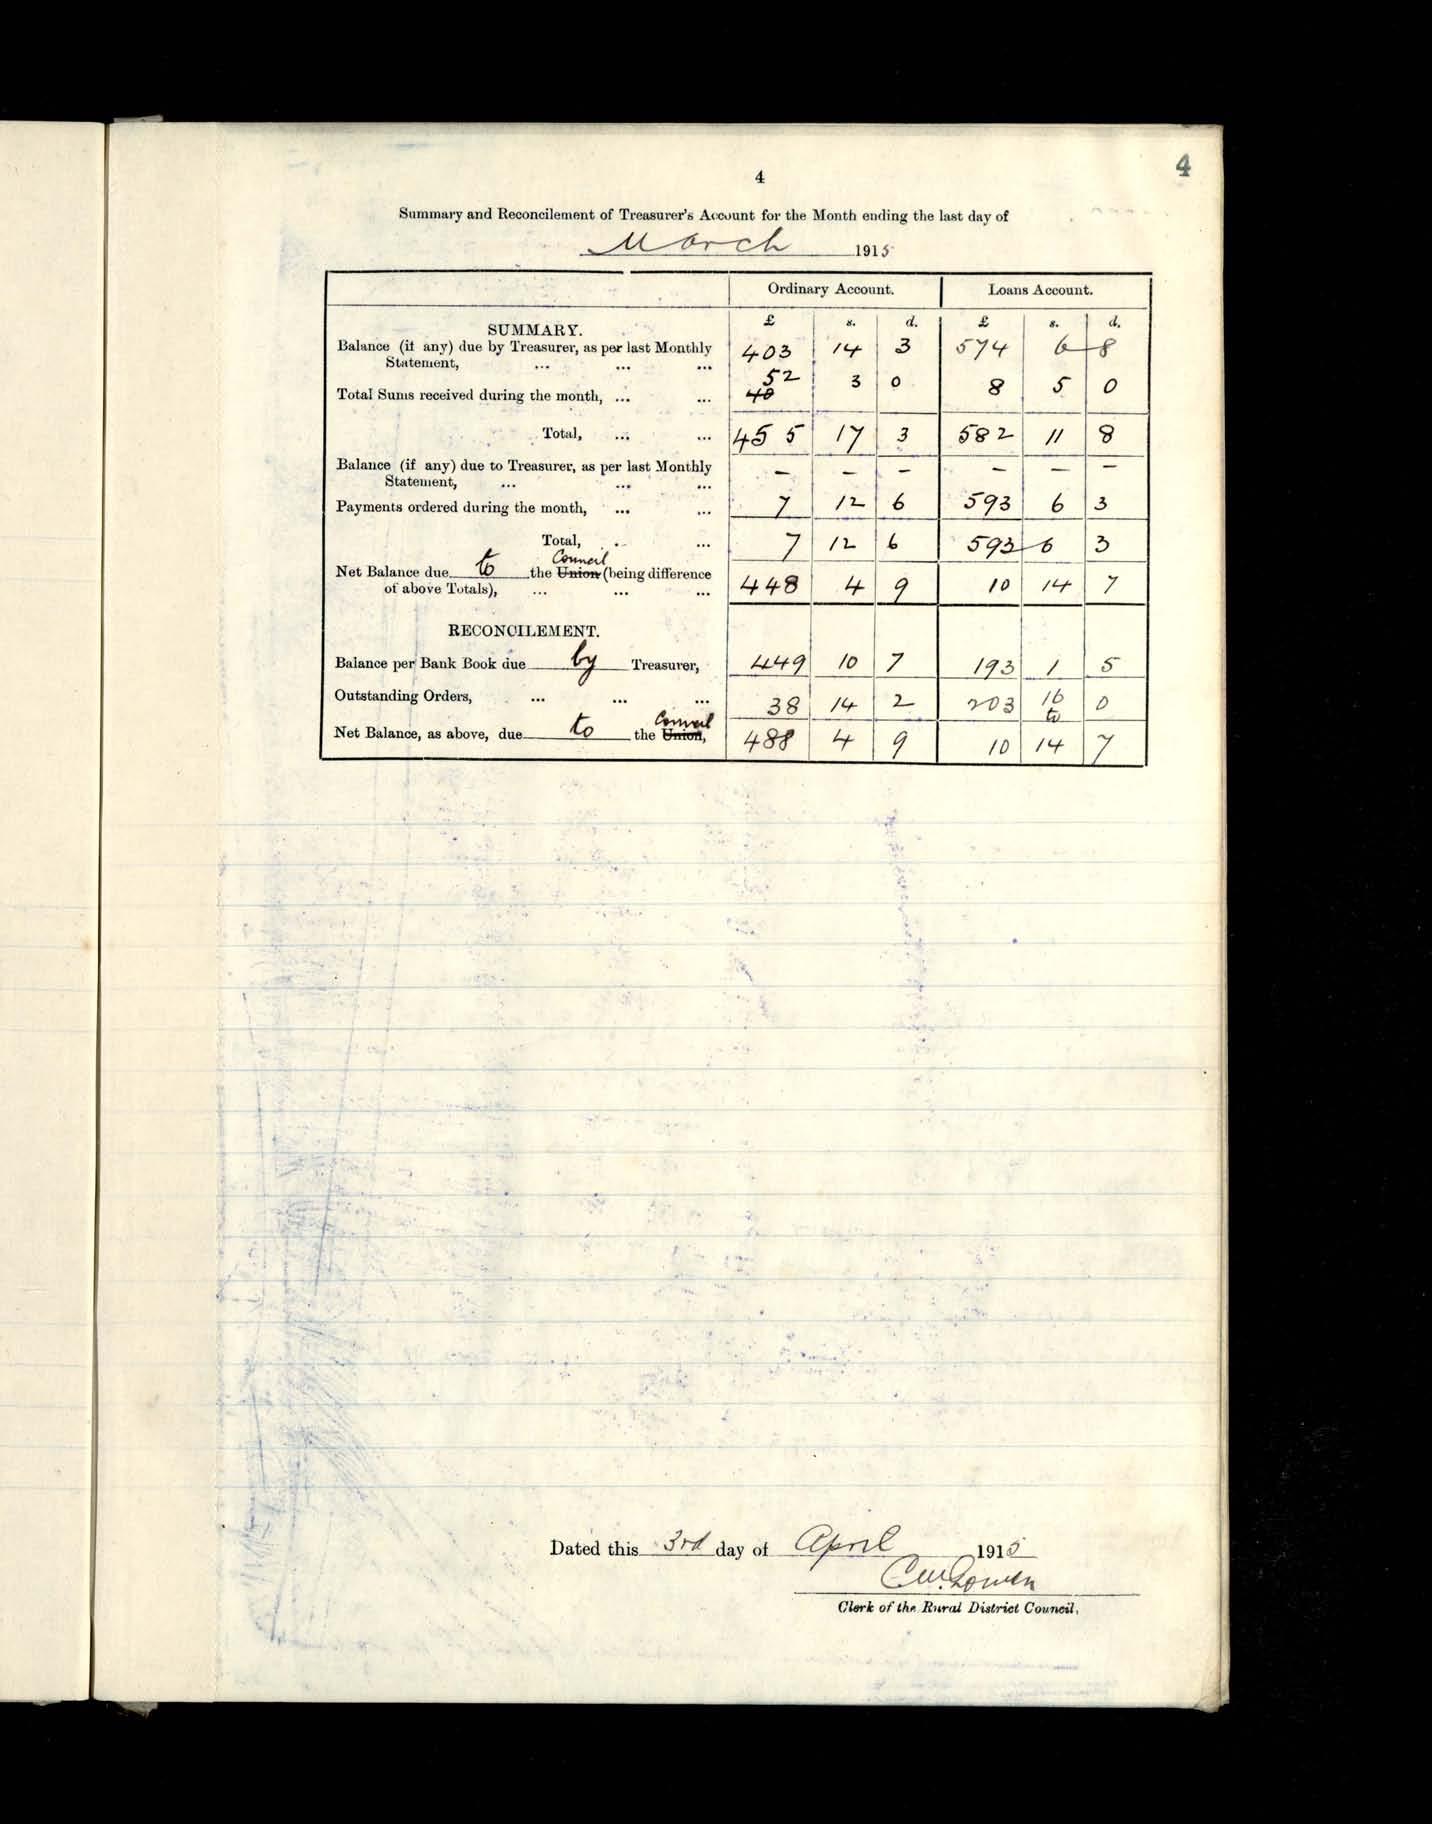 4
4
Summary and Reconcilement of Treasurer's Account for the Month ending the last day of
March 1915
Ordinary Account. Loans Account.
£ s. d. £ s. d.
SUMMARY.
Balance (if any) due by Treasurer, as per last Monthly
Statement, ... ... ... 403 14 3 574 6 8
52
Total Sums received during the month, ... ... 48 3 0 8 5 0
Total, ... ... 455 17 3 582 11 8
Balance (if any) due to Treasurer, as per last Monthly
Statement, ... ... ... – – – – – –
Payments ordered during the month, ... ... 7 12 6 593 6 3
Total, .. ... 7 12 6 593 6 3
Council
Net Balance due to the Union (being difference
of above Totals), ... ... ... 448 4 9 10 14 7
RECONCILEMENT.
Balance per Bank Book due by Treasurer, 449 10 7 193 1 5
Outstanding Orders, ... ... ... 38 14 2 203 16 0
Council to
Net Balance, as above, due to the Union, 488 4 9 10 14 7
Dated this 3rd day of April 1915
Clerk of the Rural District Council.